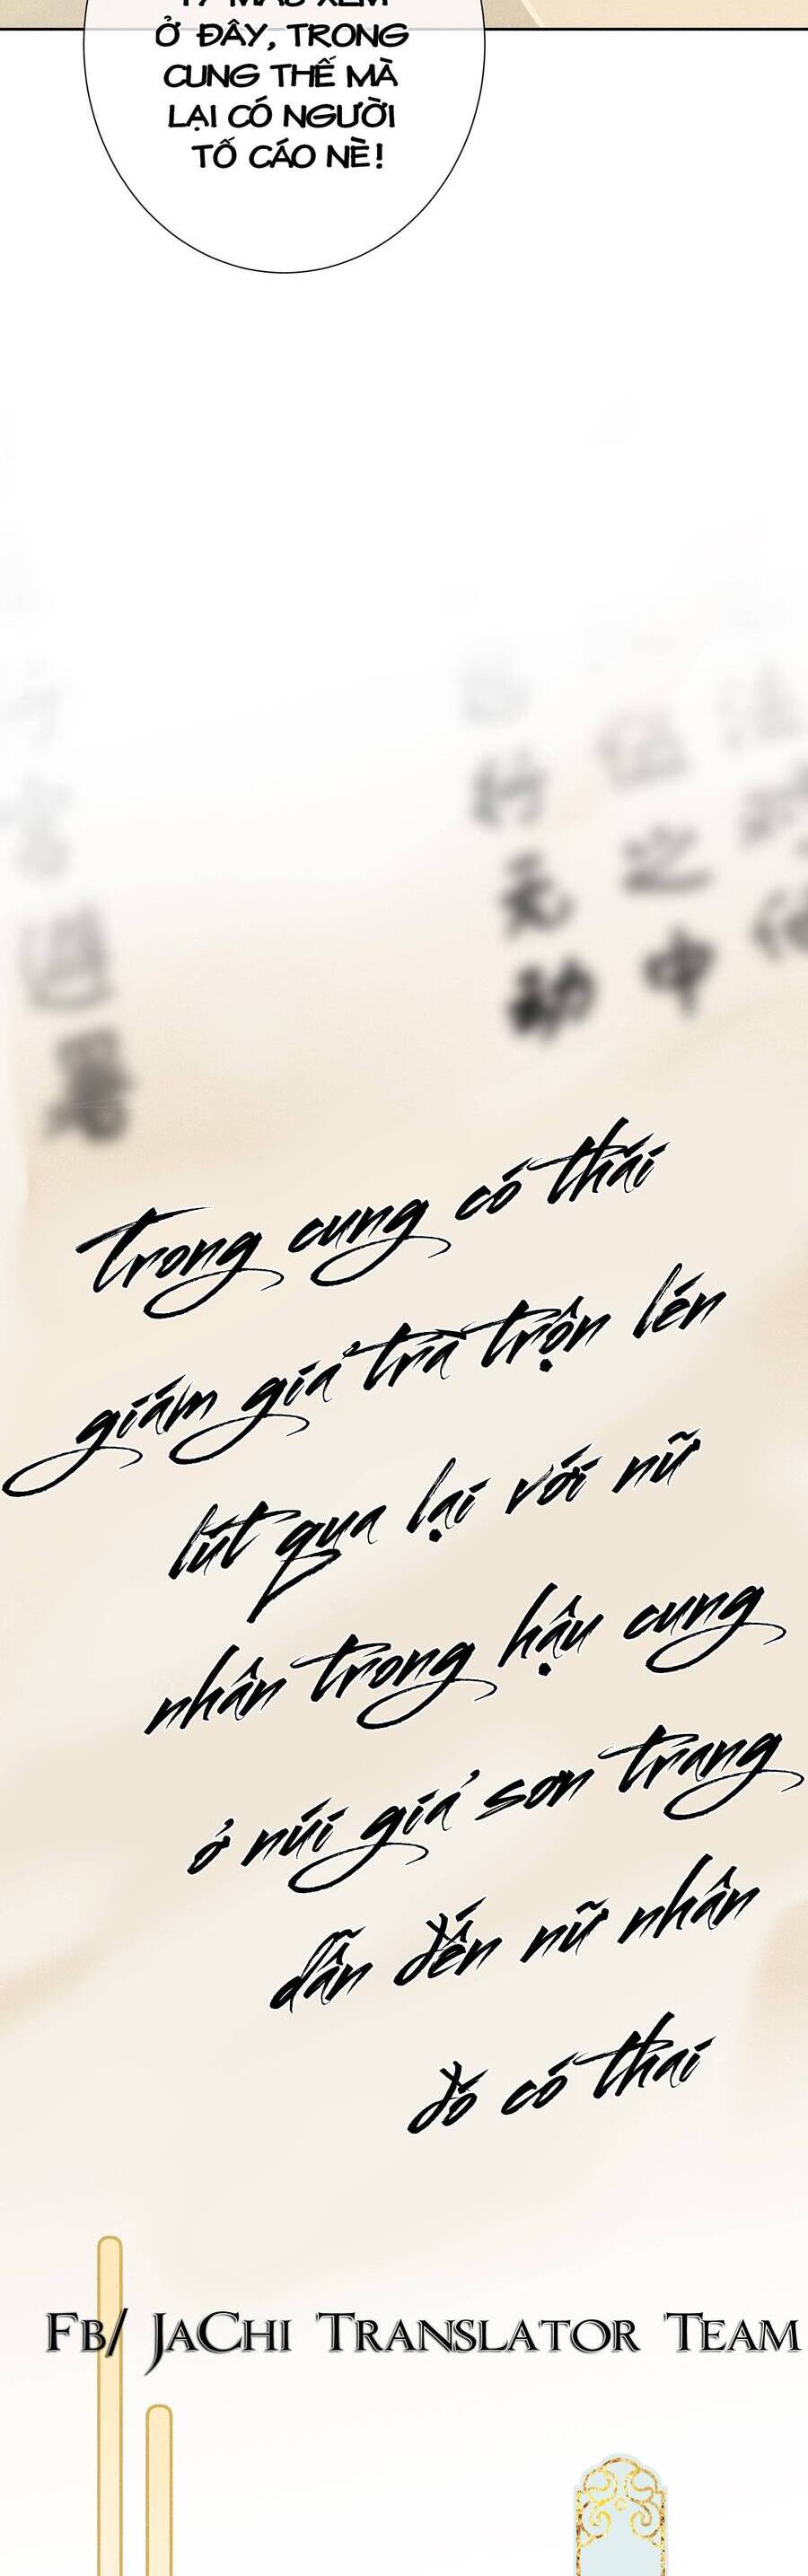 MAU XEM
Ở ĐÂY, TRONG
CUNG THẾ MÀ
LẠI CÓ NGƯỜI
TỐ CÁO NÈ!
行
无
动
之
中
trong cung có thái
giám giả trà trộn lén
lút qua lại với nữ
nhân trong hậu cung
ở núi giả sơn trang
dẫn đến nữ nhân
đó có thai
FB/ JACHI TRANSLATOR TEAM